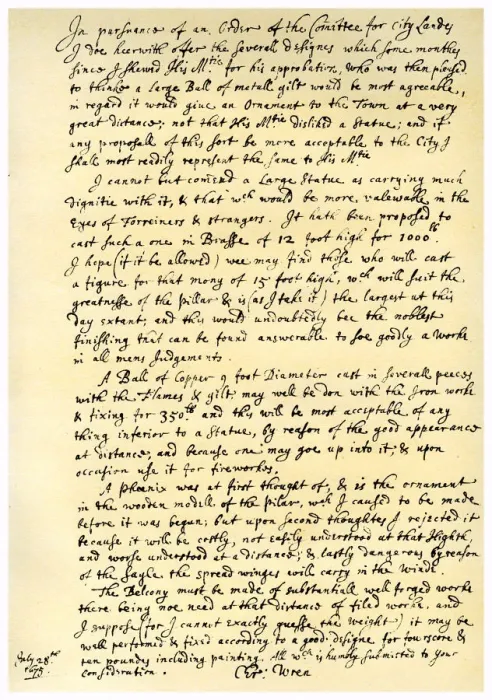 In pursuance of an Order of the Comittee for City Landes
I doe heerwith offer the severall designes which some monthes
since I shewed His M.tie for his approbation, who was then pleased
to thinke a large Ball of metall gilt would be most agreeable,
in regard it would give an Ornament to the Town at a very
great distance; not that His M.tie disliked a Statue; and if
any proposall of this sort be more acceptable to the City I
shall most readily represent the same to His M.tie
I cannot but comend a Large Statue as carrying much
dignitie with it, & that wch would be more valewable in the
Eyes of Forreiners & strangers. It hath been proposed to
cast such a one in Brasse of 12 foot high for 1000lb.
I hope (if it be allowed) wee may find those who will cast
a figure for that mony of 15 foot high, wch will suit the
greatnesse of the pillar & is (as I take it) the largest at this
day extant; and this would undoubtedly bee the noblest
finishing that can be found answerable to soe goodly a worke
in all mens Judgements.
A Ball of Copper 9 foot Diameter cast in severall peeces
with the Flames & gilt, may well be don with the Iron worke
& fixing for 350lb. and this will be most acceptable of any
thing inferior to a Statue, by reason of the good appearance
at distance, and because one may goe up into it; & upon
occasion use it for fireworkes.
A Phoenix was at first thought of, & is the ornament
in the wooden modell of the pilar, wch I caused to be made
before it was begun; but upon second thoughtes I rejected it
because it will be costly, not easily understood at that Highth,
and worse understood at a distance; & lastly dangerous by reason
of the sayle the spread winges will carry in the Winde.
The Belcony must be made of substantiall well forged worke
there being noe need at that distance of filed worke, and
I suppose (for I cannot exactly guesse the weight) it may be
well performed & fixed according to a good designe for fourscore &
ten poundes including painting. All wch is humbly submitted to your
consideration.
July 28th
1675.
Chr: Wren